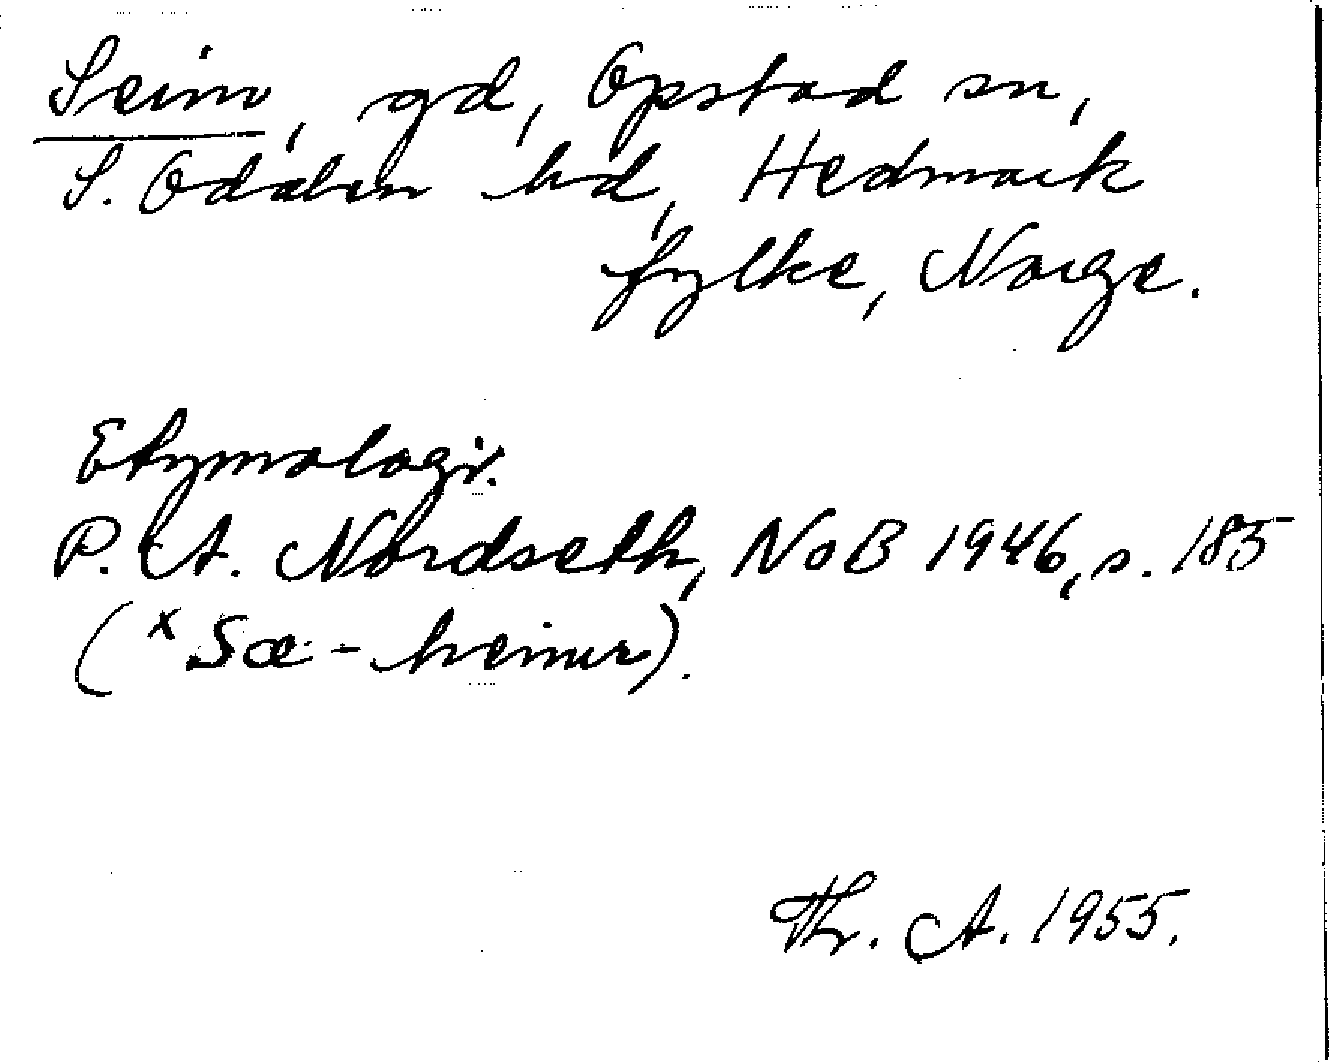 Seim, gd, Opstad sn,
S. Odalen hd, Hedmark
fylke, Norge.
Etymologi.
P. A. Nordseth, NoB 1946, s. 185
(ˣSæ-heimr).
Th. A. 1955.